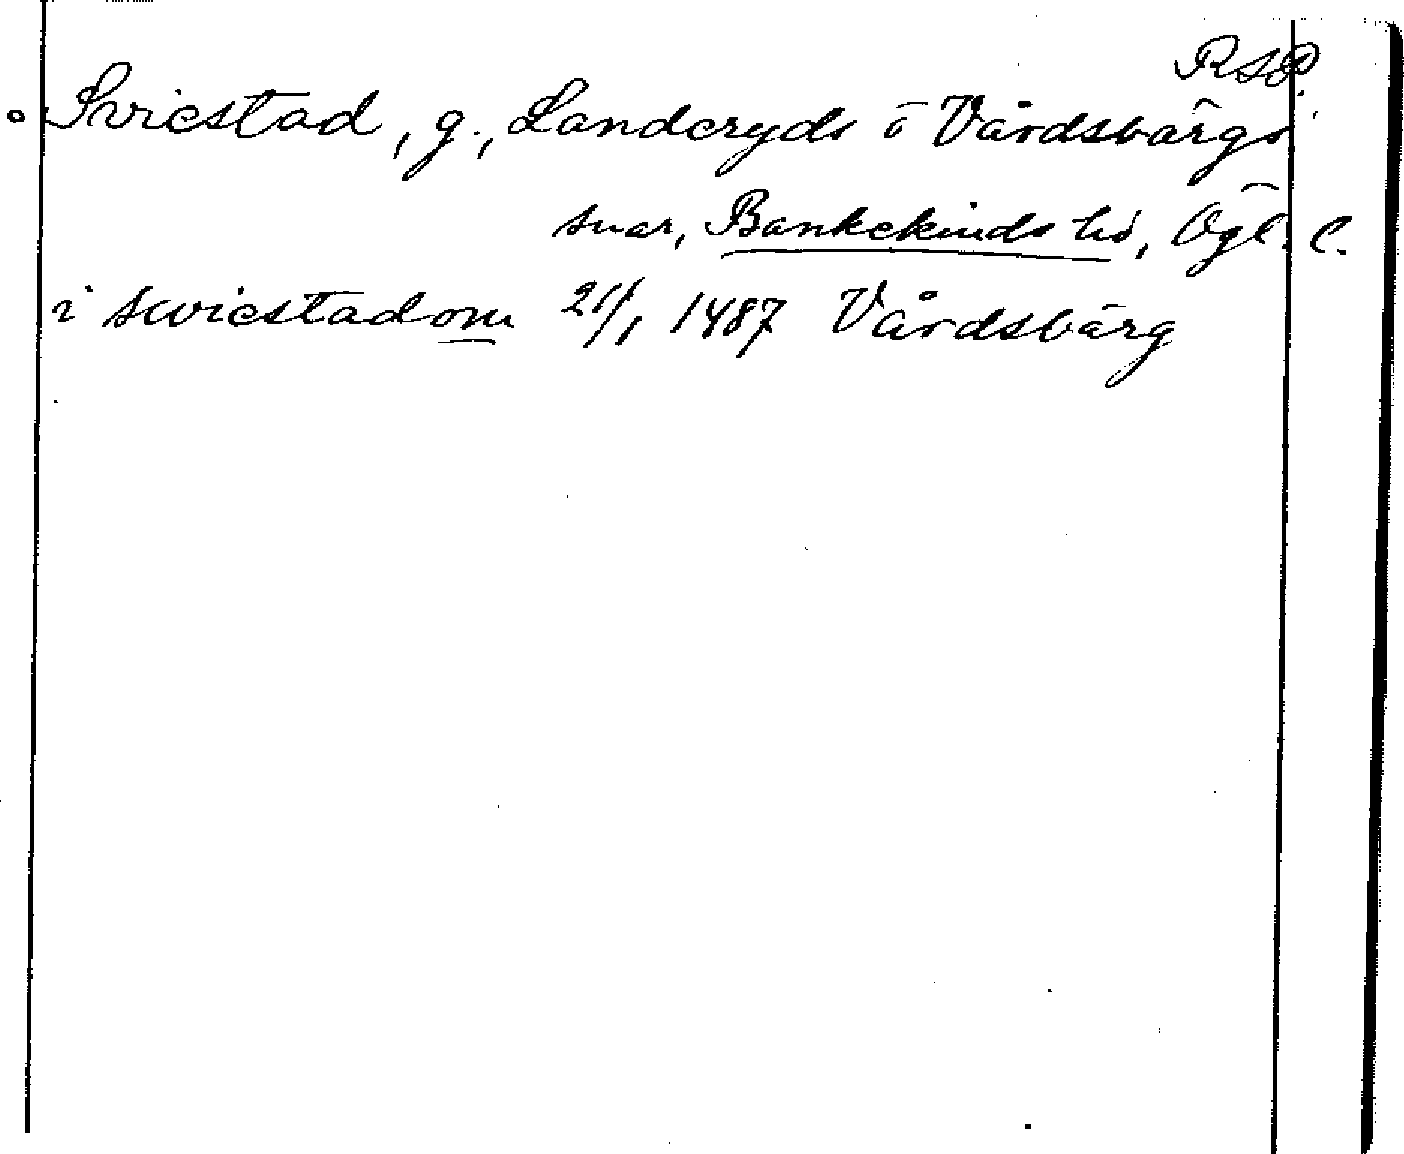 RAP.
Sviestad, g., Landeryds o Vårdsbärgs
snar, Bankekinds hd, Ögl. l.
i swiestadom 21/1 1487 Vårdsbärg